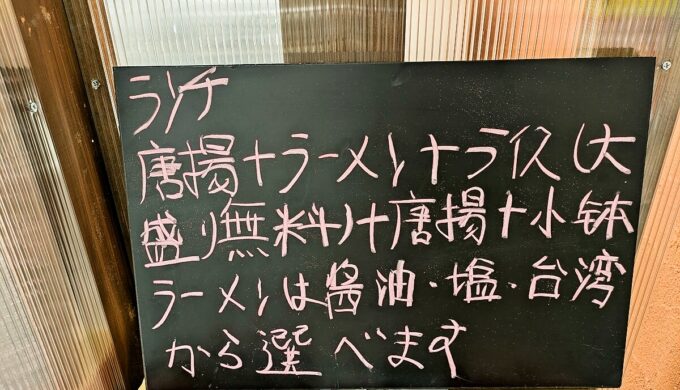 ランチ
唐揚+ラーメン+ライス(大
盛り無料)+唐揚+小鉢
ラーメンは醤油・塩・台湾
から選べます